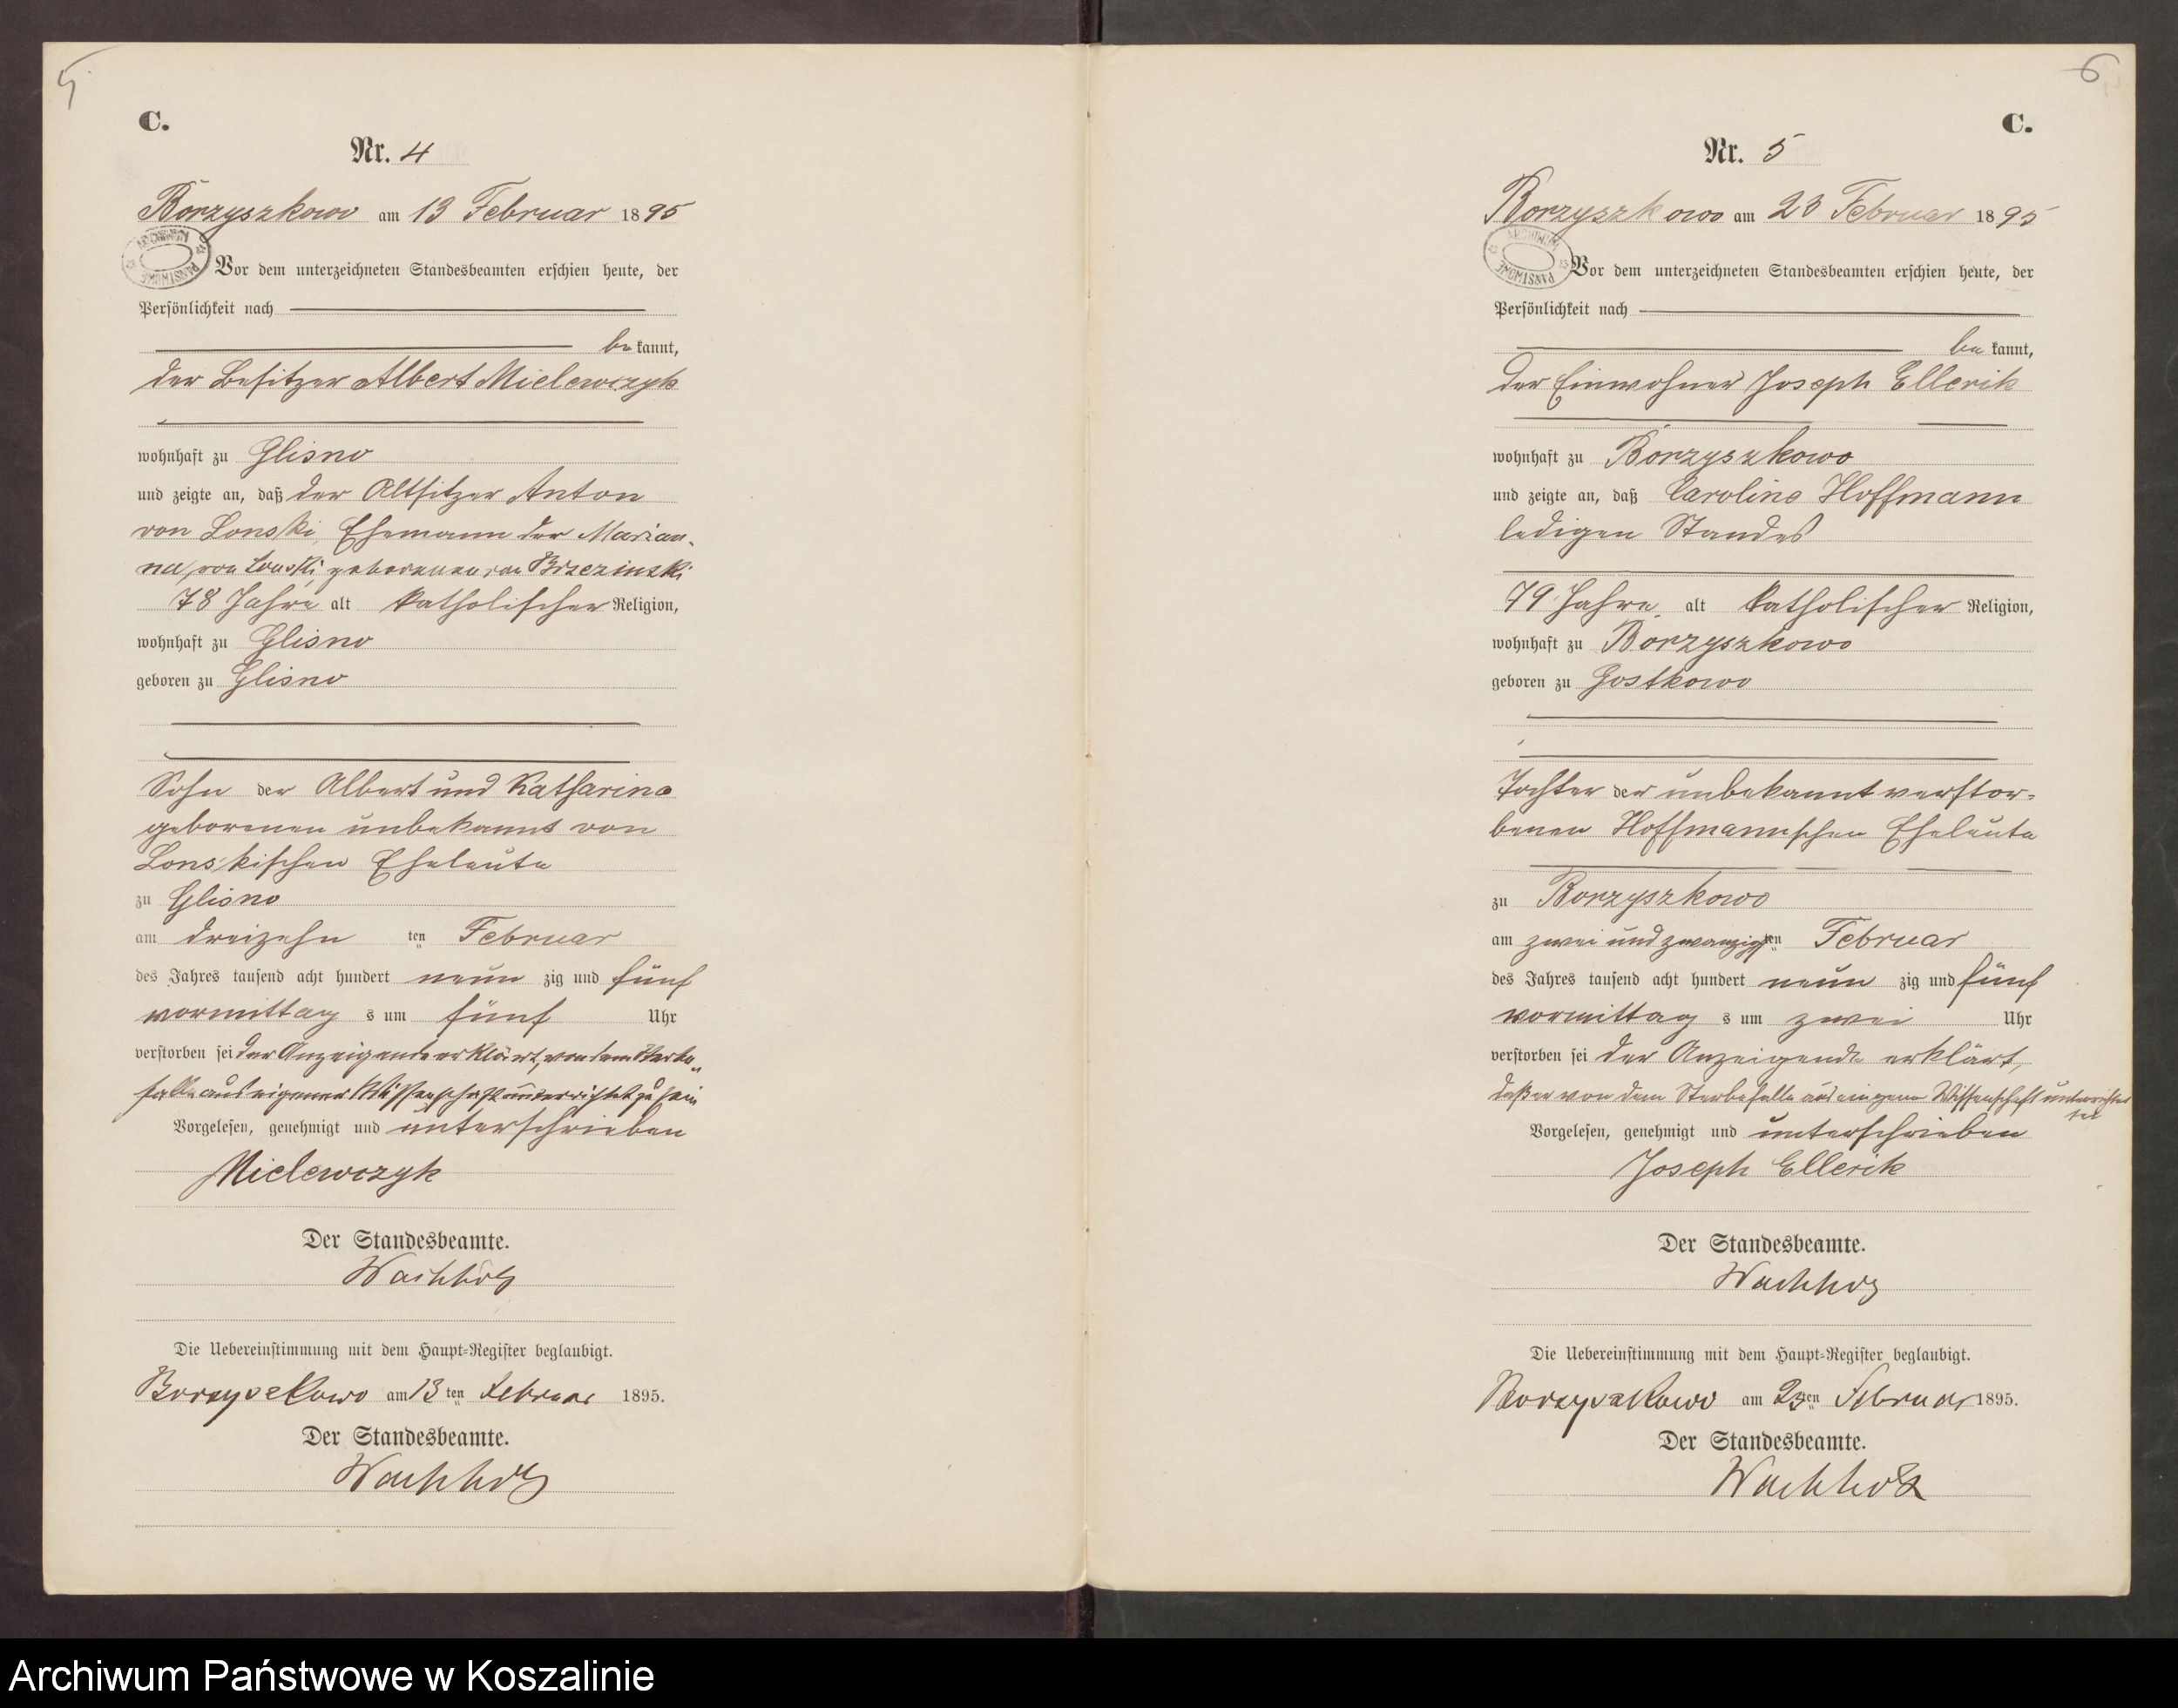 5.
C.
Nr. 4
Borzyszkowo am 13 Februar 1895
ARCHIWUM PAŃSTWOWE
Vor dem unterzeichneten Standesbeamten erschien heute, der
Persönlichkeit nach
be kannt,
der Besitzer Albert Mielewczyk
wohnhaft zu Glisno
und zeigte an, daß der Altsitzer Anton
von Lonski, Ehemann der Marian-
na, von Lonski, geborenen von Brzezinski
78 Jahre alt katholischer Religion,
wohnhaft zu Glisno
geboren zu Glisno
Sohn der Albert und Katharina
geborenen unbekannt von
Lonskischen Eheleute
zu Glisno
am dreizehn ten Februar
des Jahres tausend acht hundert neun zig und fünf
vormittag s um fünf Uhr
verstorben sei der Anzeigende erklärt, von dem Sterbe-
falle aus eigener Wissenschaft unterrichtet zu sein
Vorgelesen, genehmigt und unterschrieben
Mielewczyk
Der Standesbeamte.
Wachholz
Die Uebereinstimmung mit dem Haupt-Register beglaubigt.
Borzyszkowo am 13 ten Februar 1895.
Der Standesbeamte.
Wachholz
6
C.
Nr. 5
Borzyszkowo am 23 Februar 1895
ARCHIWUM PAŃSTWOWE
Vor dem unterzeichneten Standesbeamten erschien heute, der
Persönlichkeit nach
be kannt,
der Einwohner Joseph Ellerik
wohnhaft zu Borzyszkowo
und zeigte an, daß Caroline Hoffmann
ledigen Standes
79 Jahre alt katholischer Religion,
wohnhaft zu Borzyszkowo
geboren zu Gostkowo
Tochter der unbekannt verstor-
benen Hoffmannschen Eheleute
zu Borzyszkowo
am zwei und zwanzigsten Februar
des Jahres tausend acht hundert neun zig und fünf
vormittag s um zwei Uhr
verstorben sei der Anzeigende erklärt,
daß er von dem Sterbefalle aus eigener Wissenschaft unterrichtet
sei
Vorgelesen, genehmigt und unterschrieben
Joseph Ellerik
Der Standesbeamte.
Wachholz
Die Uebereinstimmung mit dem Haupt-Register beglaubigt.
Borzyszkowo am 23 ten Februar 1895.
Der Standesbeamte.
Wachholz
Archiwum Państwowe w Koszalinie